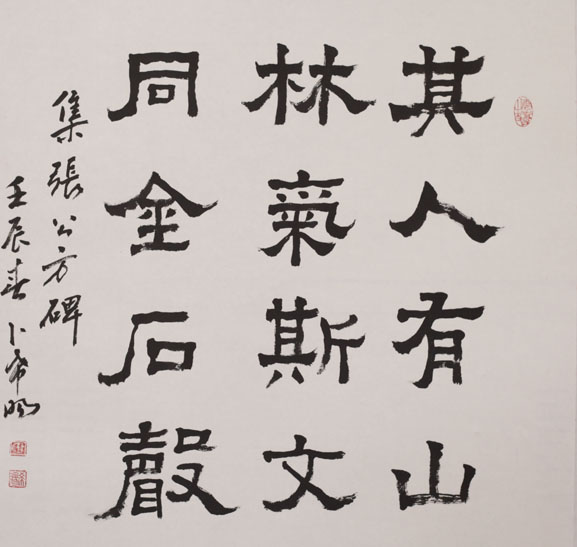 其人有山
林氣斯文
同金石聲
集張公方碑
壬辰春卜希暘